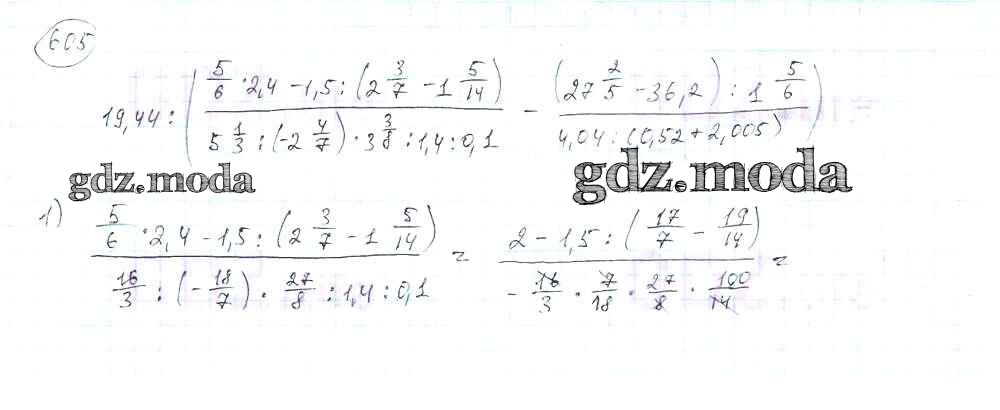 605
19,44 : ( (5/6 · 2,4 - 1,5 : (2 3/7 - 1 5/14)) / (5 1/3 : (-2 4/7) · 3 3/8 : 1,4 : 0,1) - ((27 2/5 - 36,2) : 1 5/6) / (4,04 : (0,52 + 2,005)) )
gdz.moda gdz.moda
1) (5/6 · 2,4 - 1,5 : (2 3/7 - 1 5/14)) / (16/3 : (-18/7) · 27/8 : 1,4 : 0,1) = (2 - 1,5 : (17/7 - 19/14)) / (- 16/3 · 7/18 · 27/8 · 100/14) =